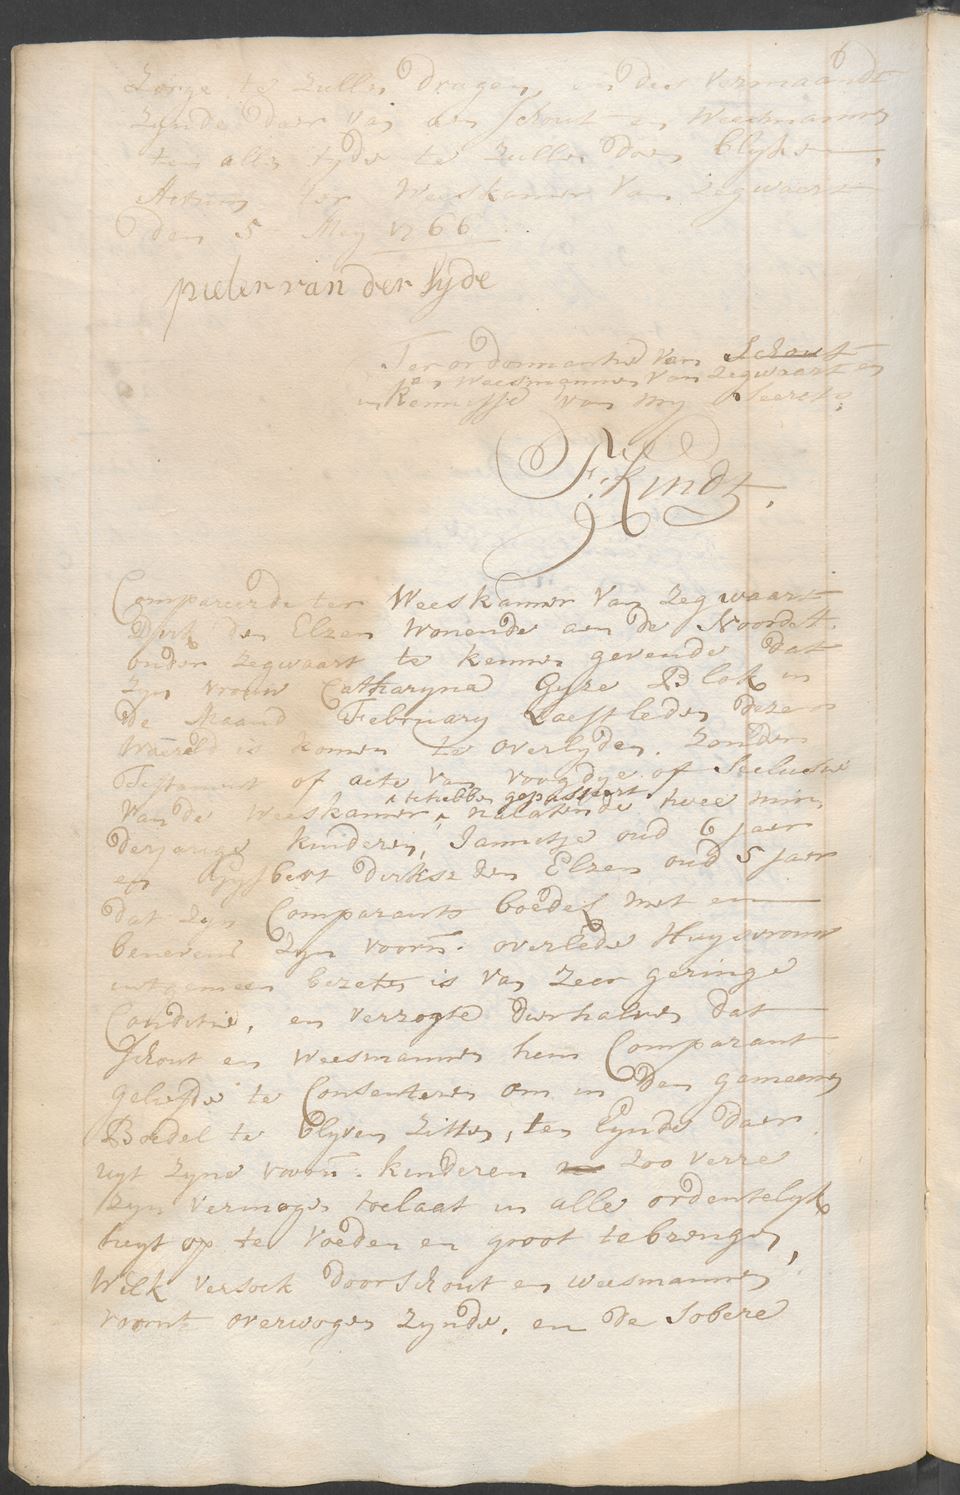 6
Zorge te Zullen dragen, en des vermaandt
Zynde daer van aen Schout en Weesmannen
ten allen tyde te Zullen doen blyken
Actum ter Weeskamer van Zegwaart
den 5 Mey 1766
pieter van der Syde
Ter ordonnantie van Schout
en Weesmannen van Zegwaart en
in Kennisse van my Secrets:
F. Kindt.
Compareerde ter Weeskamer van Zegwaart
Dirk den Elzen Wonende aen de Noordt.
onder Zegwaart te kennen gevende dat
Zyn vrouw Catharyna Gyze Blok in
de Maand February Laestleden dezer
Waereld is komen te overlyden. Zonder
Testament of acte van voogdye of Seclusie
te hebben gepasseert
van de Weeskamer nalatende twee min,
derjarige kinderen, Jannitje oud 6 jaer
en Gysbert dirksz den Elzen oud 5 jaer
dat zyn Comparants boedel met en
benevens zyn voorn: overlede Huysvrouw
int gemeen bezeten is van zeer geringe
Conditie, en verzogte derhalven dat
Schout en Weesmannen hem Comparant
geliefde te Consenteren om in den gemeenen
Boedel te blyven zitten, ten eynde daer
uyt zyne voorn: kinderen zoo verre
zyn vermogen toelaat in alle ordentelyk
heyt op te voeden en groot te brengen,
Welk versoek door Schout en weesmannen
voornt overwogen zynde, en de sobere